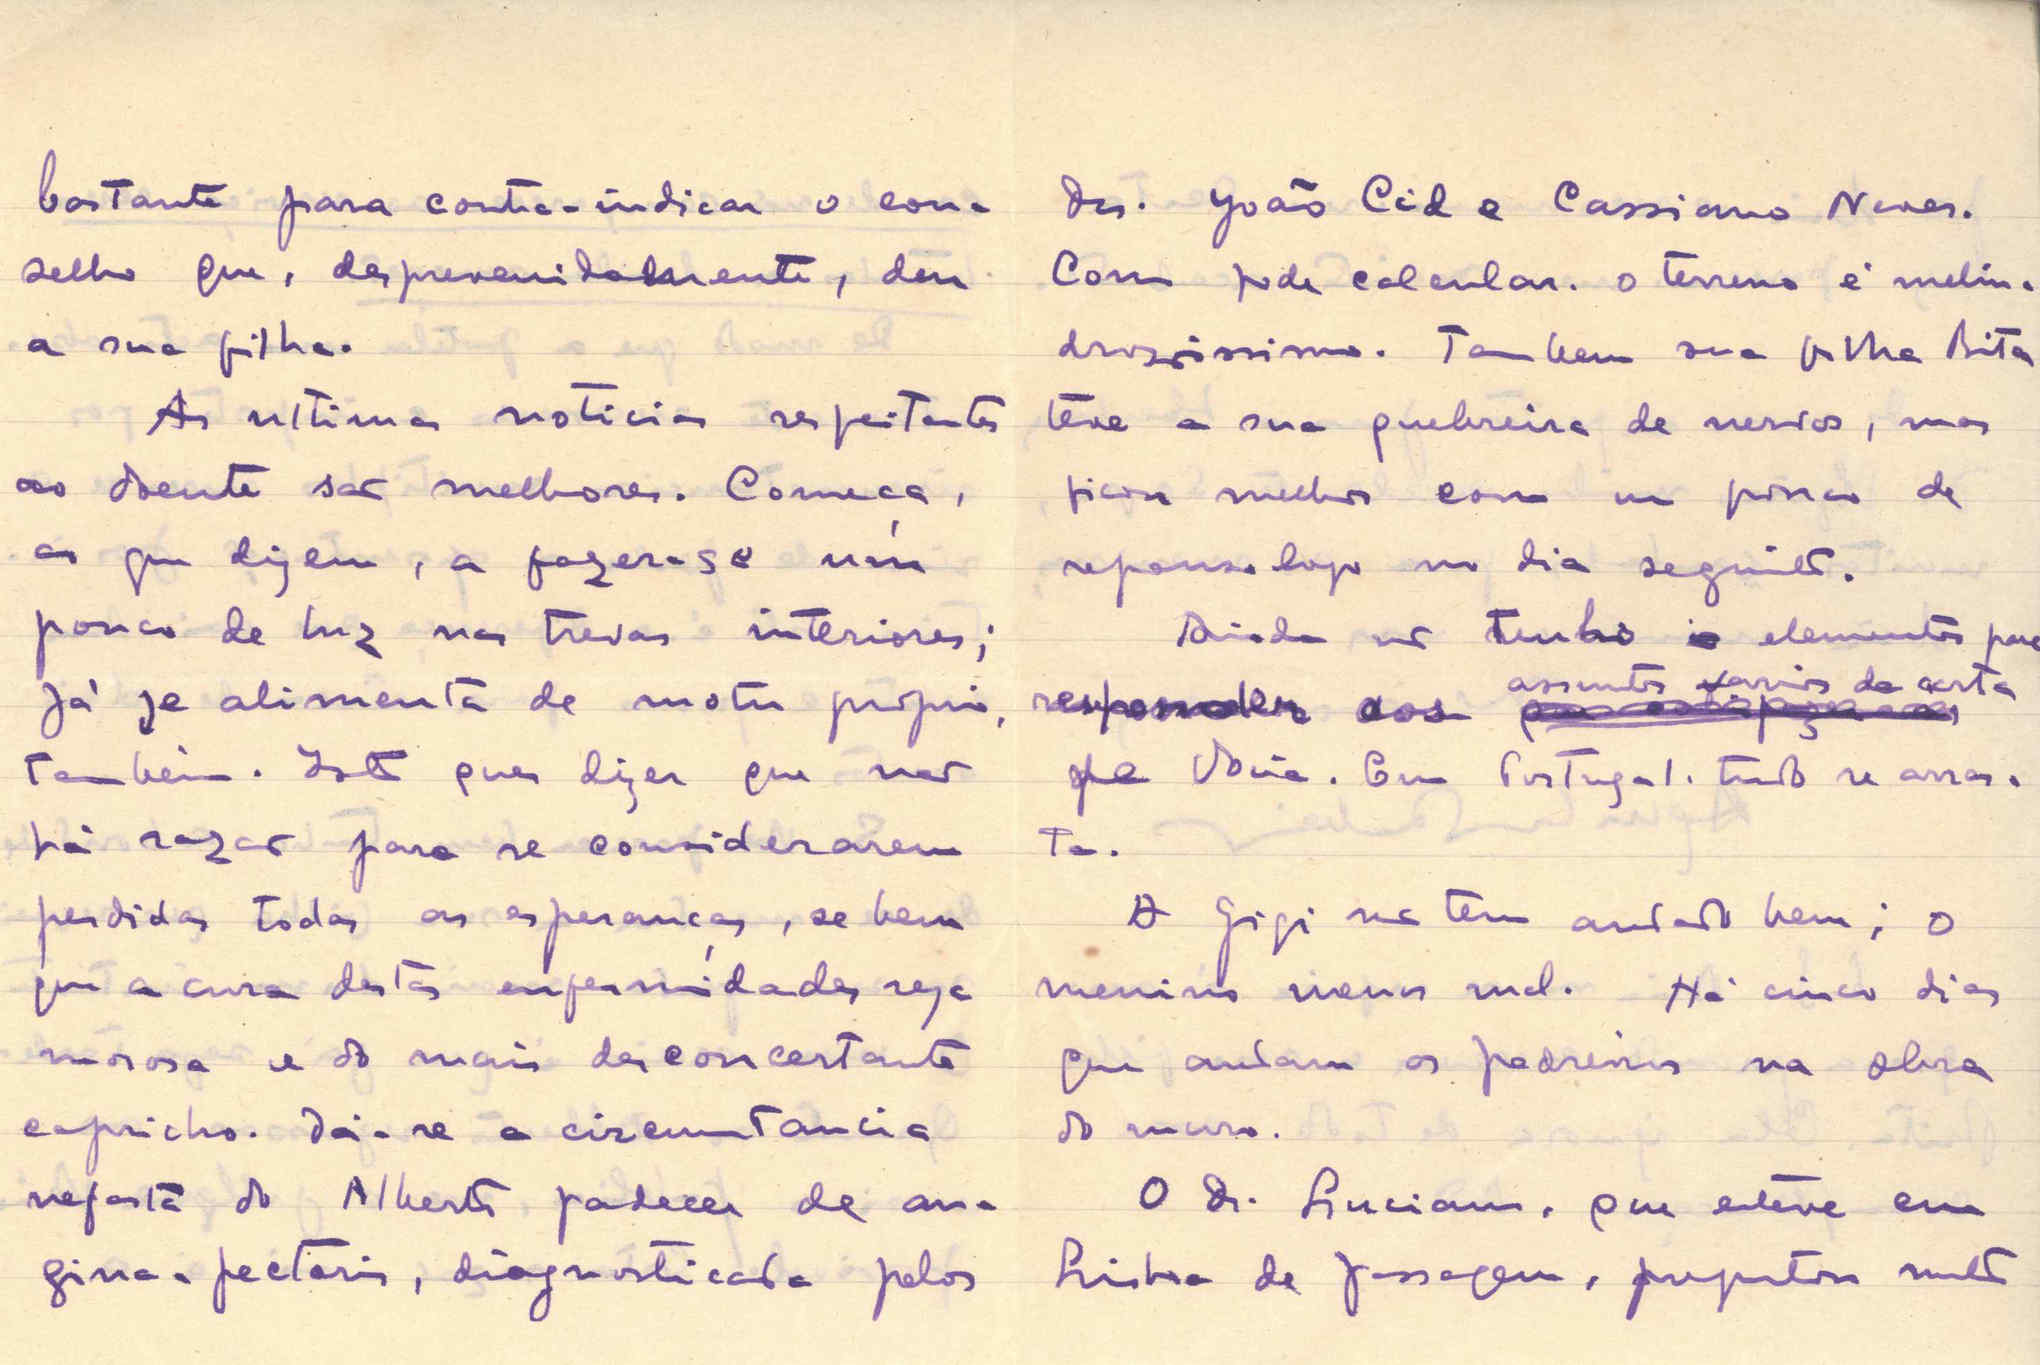 bastante para contra-indicar o con-
selho que, desprevenidamente, deu
a sua filha.
As ultimas noticias respeitantes
ao doente são melhores. Começa,
ao que dizem, a fazer-se um
pouco de luz nas trevas interiores;
Já se alimenta de motu próprio,
tambêm. Isto quer dizer que não
há razão para se considerarem
perdidas todas as esperanças, se bem
que a cura destas enfermidades seja
morosa e do mais desconcertante
capricho. Dá-se a circunstancia
nefasta do Alberto padecer de an-
gina-pectoris, diagnosticada pelos
Drs. João Cid e Cassiano Neves.
Como pode calcular. o terreno é melin-
drosissimo. Tambem sua filha Rita
têve a sua quebreira de nervos, mas
ficou melhor com um pouco de
repouso logo no dia seguinte.
Ainda não tenho elementos para
responder aos assuntos varios da carta
de V. Em Portugal. tudo se arras-
ta.
A Gigi não tem andado bem; o
menino menos mal. Há cinco dias
que andam os pedreiros na obra
do muro.
O dr. Luciano, que estêve em
Lisboa de passagem, perguntou muito